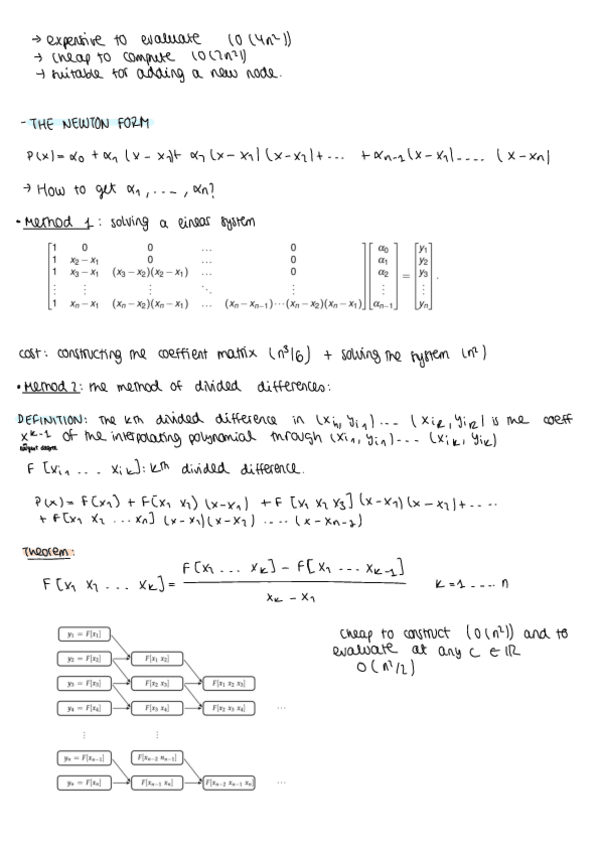 → expensive to evaluate (O(4n²))
→ cheap to compute (O(2n²))
→ suitable for adding a new node.
- THE NEWTON FORM
P(x) = α₀ + α₁ (x - x₁)+ α₂ (x - x₁) (x - x₂) + ... + αn-1 (x - x₁) .... (x - xn)
→ How to get α₁, ..., αn?
• Method 1: solving a linear system
1 0 0 ... 0 α₀ y₁
1 x₂ − x₁ 0 ... 0 α₁ y₂
1 x₃ − x₁ (x₃ − x₂)(x₂ − x₁) ... 0 α₂ = y₃
⋮ ⋮ ⋮ ⋱ ⋮ ⋮ ⋮
1 xn − x₁ (xn − x₂)(xn − x₁) ... (xn − xn−1)⋯(xn − x₂)(xn − x₁) αn−1 yn .
cost: constructing the coeffient matrix (n³/6) + solving the system (n²)
• Method 2: the method of divided differences:
DEFINITION: The kth divided difference in (xi₁, yi₁) ... (xik, yik) is the coeff
x^k-1 of the interpolating polynomial through (xi₁, yi₁) ... (xik, yik)
F [xi₁ ... xik]: kth divided difference.
P(x) = F(x₁) + F(x₁ x₂) (x-x₁) + F [x₁ x₂ x₃] (x - x₁) (x - x₂) + ....
+ F[x₁ x₂ ... xn] (x - x₁) (x - x₂) .... (x - xn-1)
Theorem:
F [x₁ x₂ ... xk] = F[x₁ ... xk] - F[x₁ ... xk-1] / xk - x₁ k = 1 .... n
cheap to construct (O(n²)) and to
evaluate at any c ∈ ℝ
O(n²/2)
y₁ = F[x₁]
y₂ = F[x₂] F[x₁ x₂]
y₃ = F[x₃] F[x₂ x₃] F[x₁ x₂ x₃]
y₄ = F[x₄] F[x₃ x₄] F[x₂ x₃ x₄] ...
⋮ ⋮
yn−1 = F[xn−1] F[xn−2 xn−1]
yn = F[xn] F[xn−1 xn] F[xn−2 xn−1 xn] ...